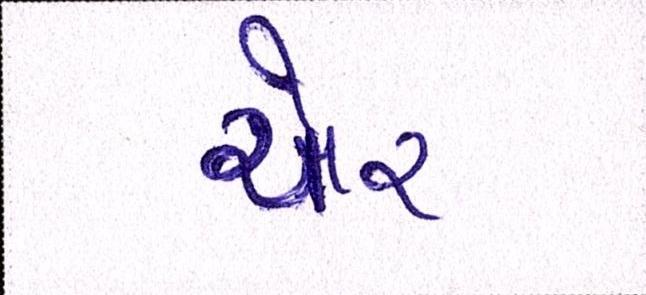 ચોર